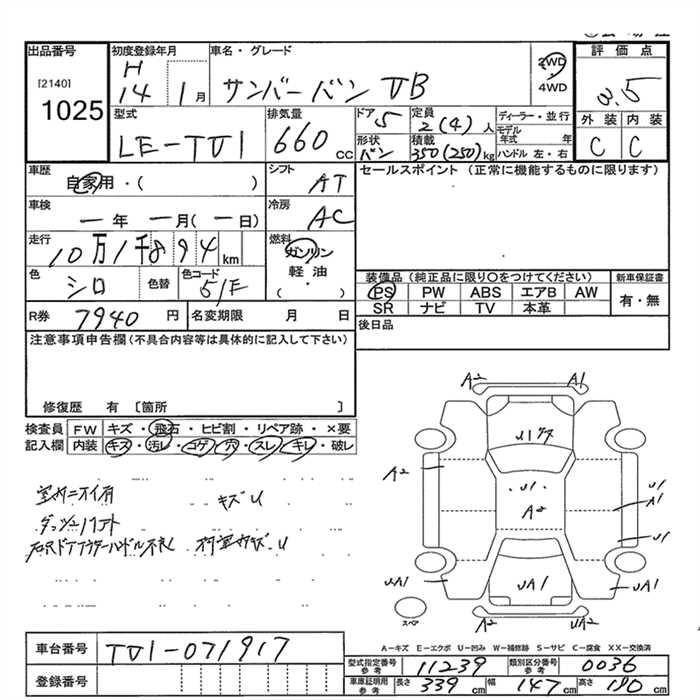 出品番号
[2140]
1025
初度登録年月
H
14 1月
車名・グレード
サンバーバン VB
2WD
4WD
評価点
3.5
外装 内装
C C
型式
LE-TV1
排気量
660 CC
ドア
5
定員
2(4)人
形状
バン
積載
350(250)kg
ディーラー・並行
モデル年式 年
ハンドル 左・右
車歴
自家用・( )
シフト
AT
車検
一年 一月(一日)
冷房
AC
走行
10万1千894km
燃料
ガソリン
軽油
( )
色
シロ
色替
色コード
51F
R券 7940円
名変期限 月 日
セールスポイント(正常に機能するものに限ります)
装備品(純正品に限り○をつけてください)
PS PW ABS エアB AW
SR ナビ TV 本革
新車保証書
有・無
後日品
注意事項申告欄(不具合内容等は具体的に記入して下さい)
修復歴 有 〔箇所 〕
検査員記入欄
FW キズ・飛石・ヒビ割・リペア跡・×要
内装 キズ・汚レ・コゲ・穴・スレ・キレ・破レ
室内ニオイ有
キズU
ダッシュ
A2 A1
U1
A2
U1
A2
U1
A1
U1
UA1 UA1 UA1
スペア
A2 UA2
A-キズ E-エクボ U-凹み W-補修跡 S-サビ C-腐食 XX-交換済
車台番号 TV1-071917
登録番号
型式指定番号 参考 11239
類別区分番号 参考 0036
車庫証明用 参考 長さ 339cm 幅 147cm 高さ 180cm